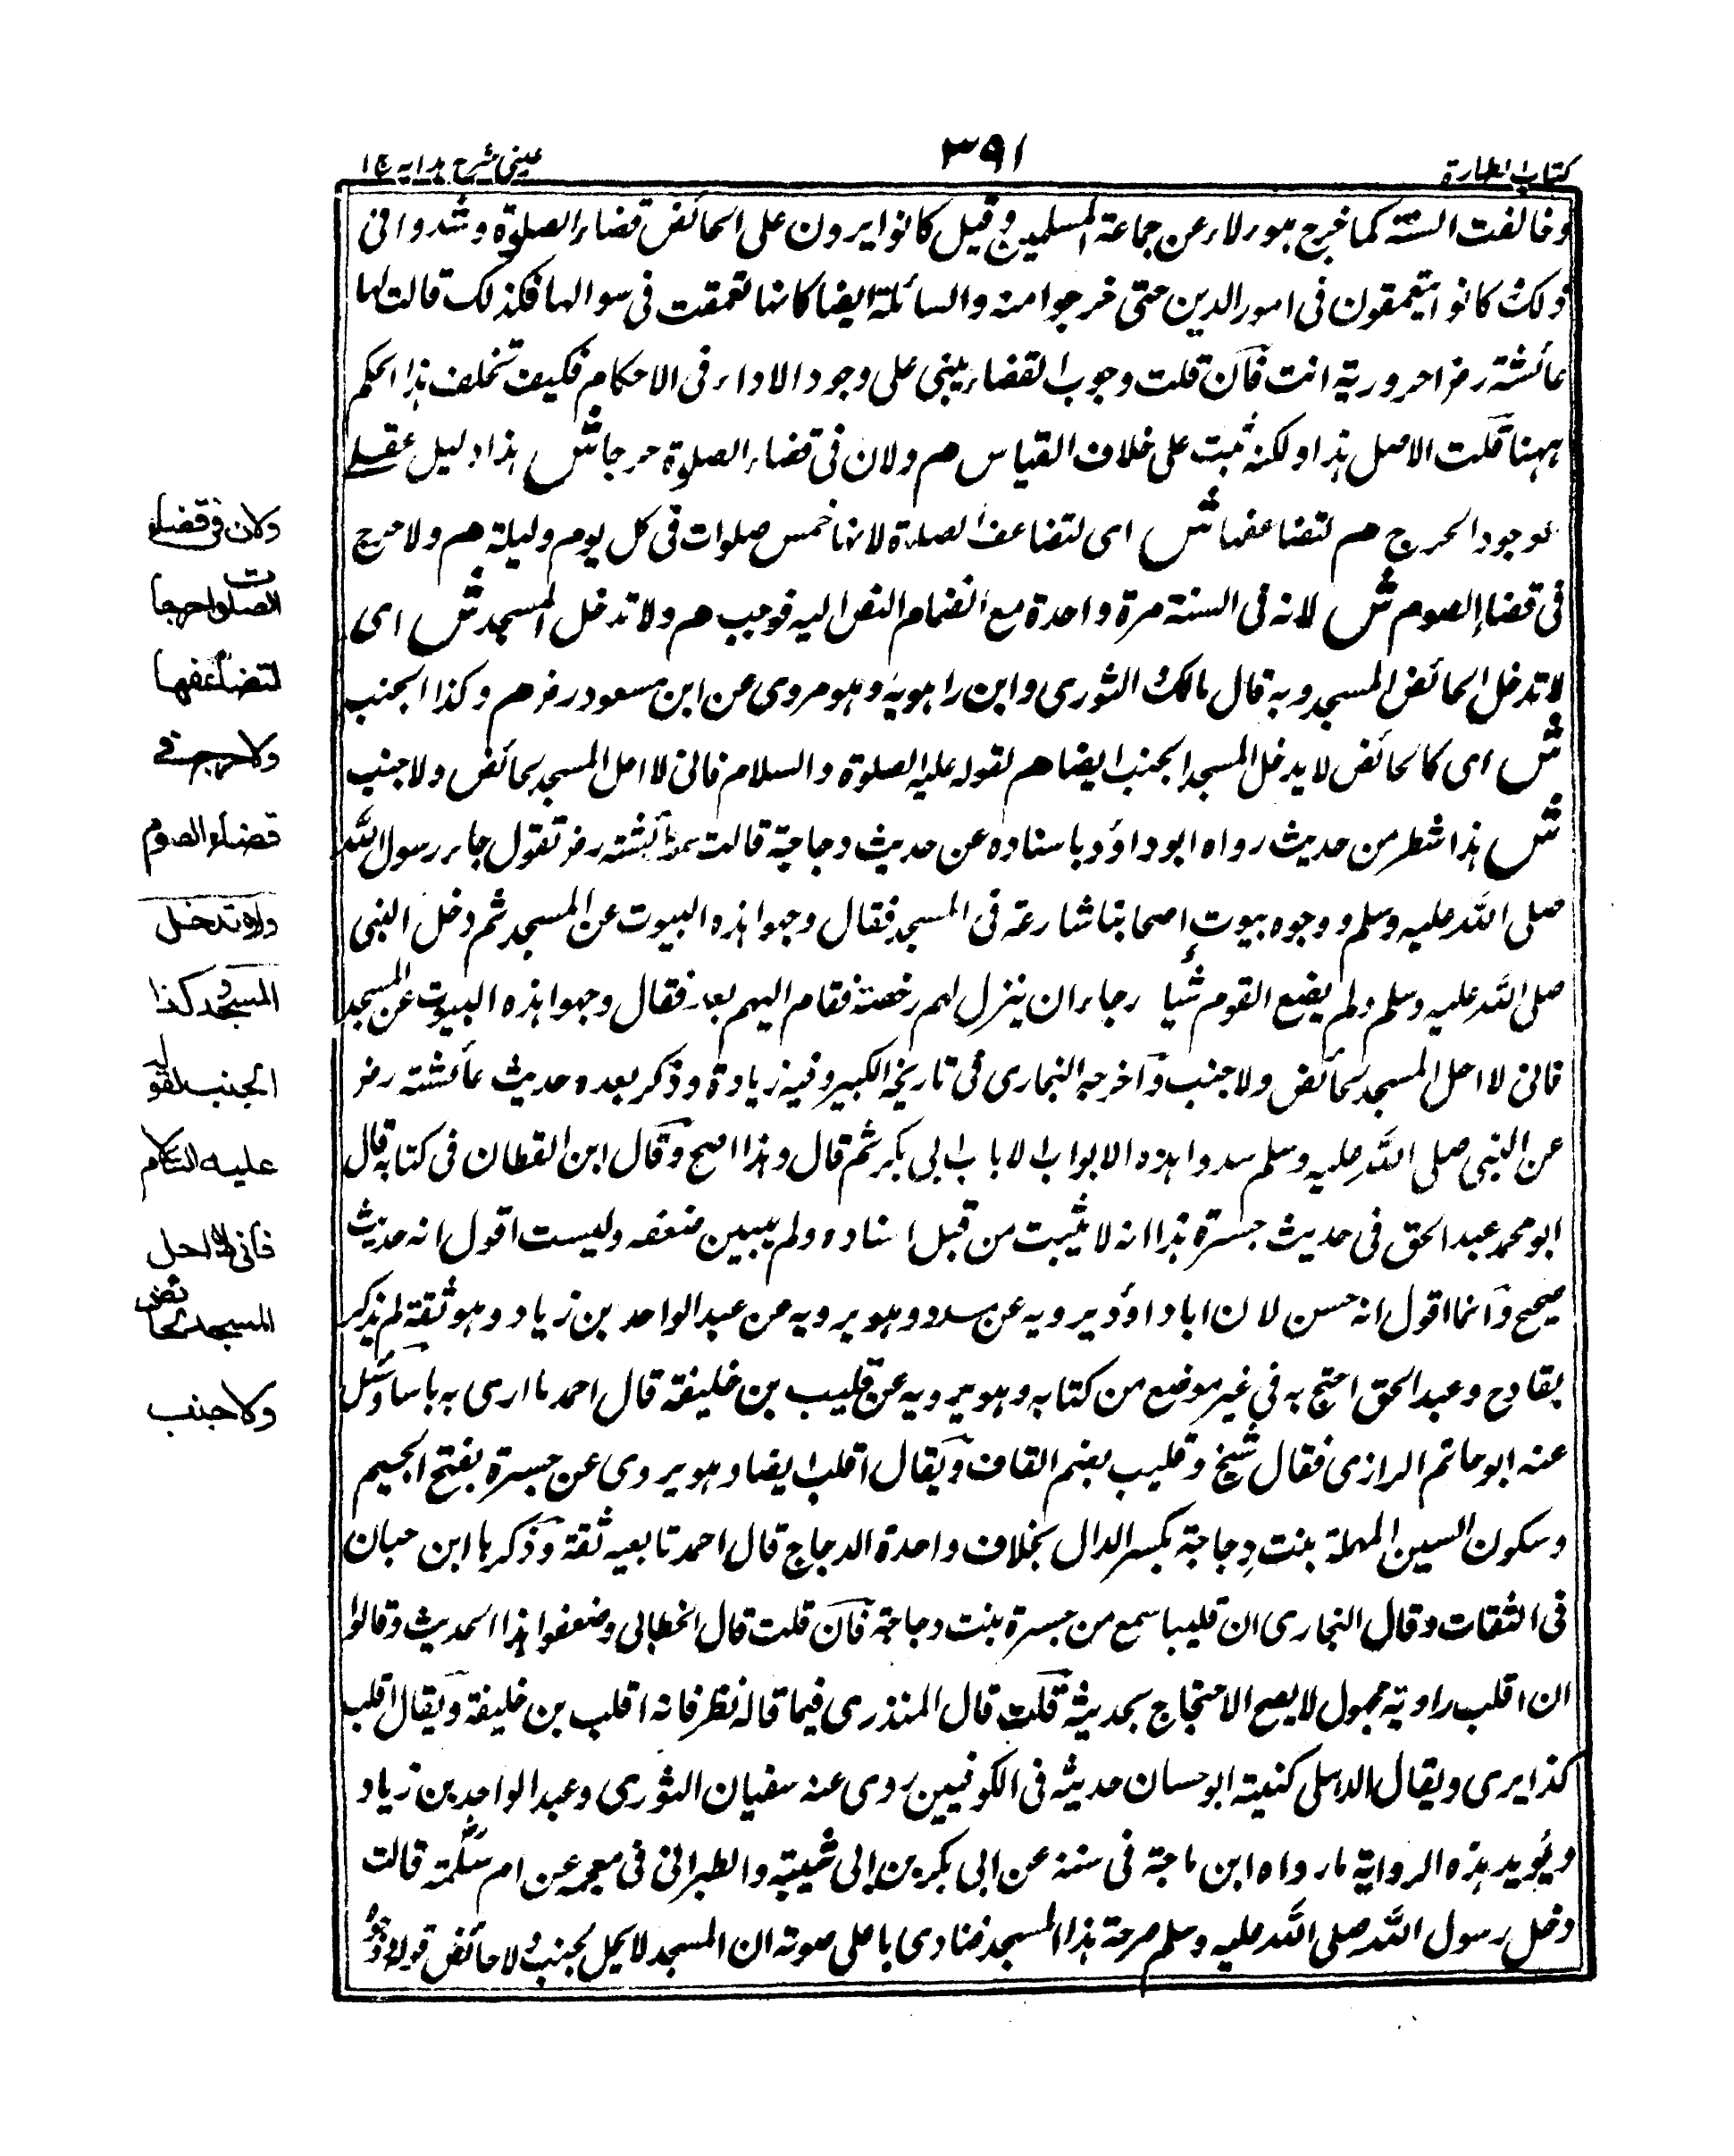 كتاب الطهارة
٣٩١
عينى شرح هدايه ج ١
وخالفت السنة كما خرج هؤلاء عن جماعة المسلمين وقيل كانوا يرون على الحائض قضاء الصلوة وشدوا فى
ذلك كانوا يتعمقون فى امور الدين حتى خرجوا منه والسائلة ايضا كانها تعمقت فى سوالها فكذلك قالت لها
عائشة رض احرورية انت فان قلت وجوب القضاء يبنى على وجود الاداء فى الاحكام فكيف تخلف هذا الحكم
ههنا قلت الاصل هذا ولكنه ثبت على خلاف القياس م ولان فى قضاء الصلوة حرجا ش هذا دليل عقلى
لوجود الحرج م لتضاعفها ش اى لتضاعف الصلوة لانها خمس صلوات فى كل يوم وليلة م ولا حرج
فى قضاء الصوم ش لانه فى السنة مرة واحدة مع انضمام النص اليه فوجب م ولا تدخل المسجد ش اى
لا تدخل الحائض المسجد وبه قال مالك الثورى وابن راهويه وهو مروى عن ابن مسعود رض م وكذا الجنب
ش اى كالحائض لا يدخل المسجد الجنب ايضا م لقوله عليه الصلوة والسلام فانى لا احل المسجد لحائض ولا جنب
ش هذا شطر من حديث رواه ابو داؤد باسناده عن حديث دجاجة قالت سمعت عائشة رض تقول جاء رسول الله
صلى الله عليه وسلم ووجوه بيوت اصحابنا شارعة فى المسجد فقال وجهوا هذه البيوت عن المسجد ثم دخل النبى
صلى الله عليه وسلم ولم يضع القوم شيأ رجاء ان ينزل لهم رخصة فقام اليهم بعد فقال وجهوا هذه البيوت عن المسجد
فانى لا احل المسجد لحائض ولا جنب واخرجه البخارى فى تاريخه الكبير وفيه زيادة وذكر بعده حديث عائشة رض
عن النبى صلى الله عليه وسلم سدوا هذه الابواب الا باب ابى بكر ثم قال وهذا اصح وقال ابن القطان فى كتابه قال
ابو محمد عبد الحق فى حديث جسرة هذا انه لا يثبت من قبل اسناده ولم يبين ضعفه وليست اقول انه حديث
صحيح وانما اقول انه حسن لان ابا داؤد يرويه عن مسدد وهو يرويه عن عبد الواحد بن زياد وهو ثقة لم يذكر
بقادح وعبد الحق احتج به فى غير موضع من كتابه وهو يرويه عن قليب بن خليفة قال احمد ما ارى به باسا وسئل
عنه ابو حاتم الرازى فقال شيخ وقليب بضم القاف ويقال اقلب ايضا وهو يروى عن جسرة بفتح الجيم
وسكون السين المهملة بنت دِجاجة بكسر الدال بخلاف واحدة الدجاج قال احمد تابعيه ثقة وذكرها ابن حبان
فى الثقات وقال البخارى ان قليبا سمع من جسرة بنت دجاجة فان قلت قال الخطابى وضعفوا هذا الحديث وقالوا
ان اقلب راويه مجهول لا يصح الاحتجاج بحديثه قلت قال المنذرى فيما قاله نظر فانه اقلب بن خليفة ويقال اقلب
كذا يرى ويقال الذهلى كنيته ابو حسان حديثه فى الكوفيين روى عنه سفيان الثورى وعبد الواحد بن زياد
ويؤيد هذه الرواية ما رواه ابن ماجة فى سننه عن ابى بكر بن ابى شيبة والطبرانى فى معجمه عن ام سلمة قالت
دخل رسول الله صلى الله عليه وسلم صرحة هذا المسجد فنادى باعلى صوته ان المسجد لا يحل لجنب ولا حائض قوله
ولان فى قضاء
الصلوات حرجا
لتضاعفها
ولا حرج فى
قضاء الصوم
ولا تدخل
المسجد وكذا
الجنب لقوله
عليه السلام
فانى لا احل
المسجد لحائض
ولا جنب